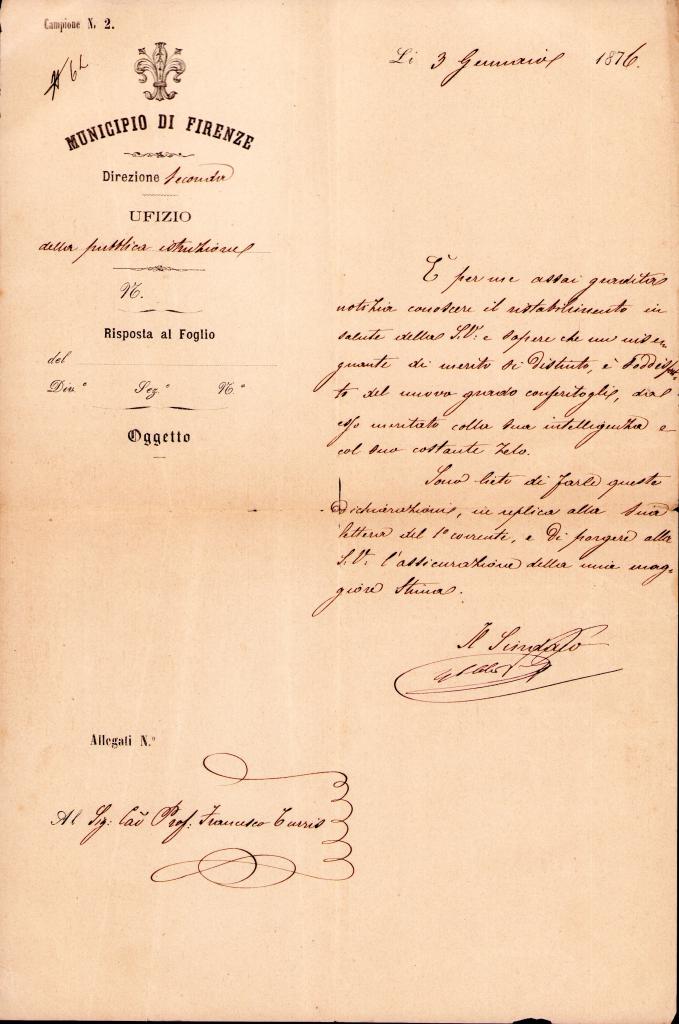 Campione N. 2.
62
MUNICIPIO DI FIRENZE
Direzione Seconda
UFIZIO
della pubblica istruzione
N.
Risposta al Foglio
del
Div.e Sez.e N.o
Oggetto
Li 3 Gennaio 1876.
È per me assai gradita
notizia conoscere il ristabilimento in
salute della S.V. e sapere che un inse-
gnante di merito sì distinto, è soddisfat-
to del nuovo grado conferitogli, da
esso meritato colla sua intelligenza e
col suo costante zelo.
Sono lieto di farle queste
dichiarazioni, in replica alla sua
lettera del 1° corrente, e di porgere alla
S.V. l'assicurazione della mia mag-
giore stima.
Il Sindaco
Allegati N.o
Al Sig: Cav Prof: Francesco Turris